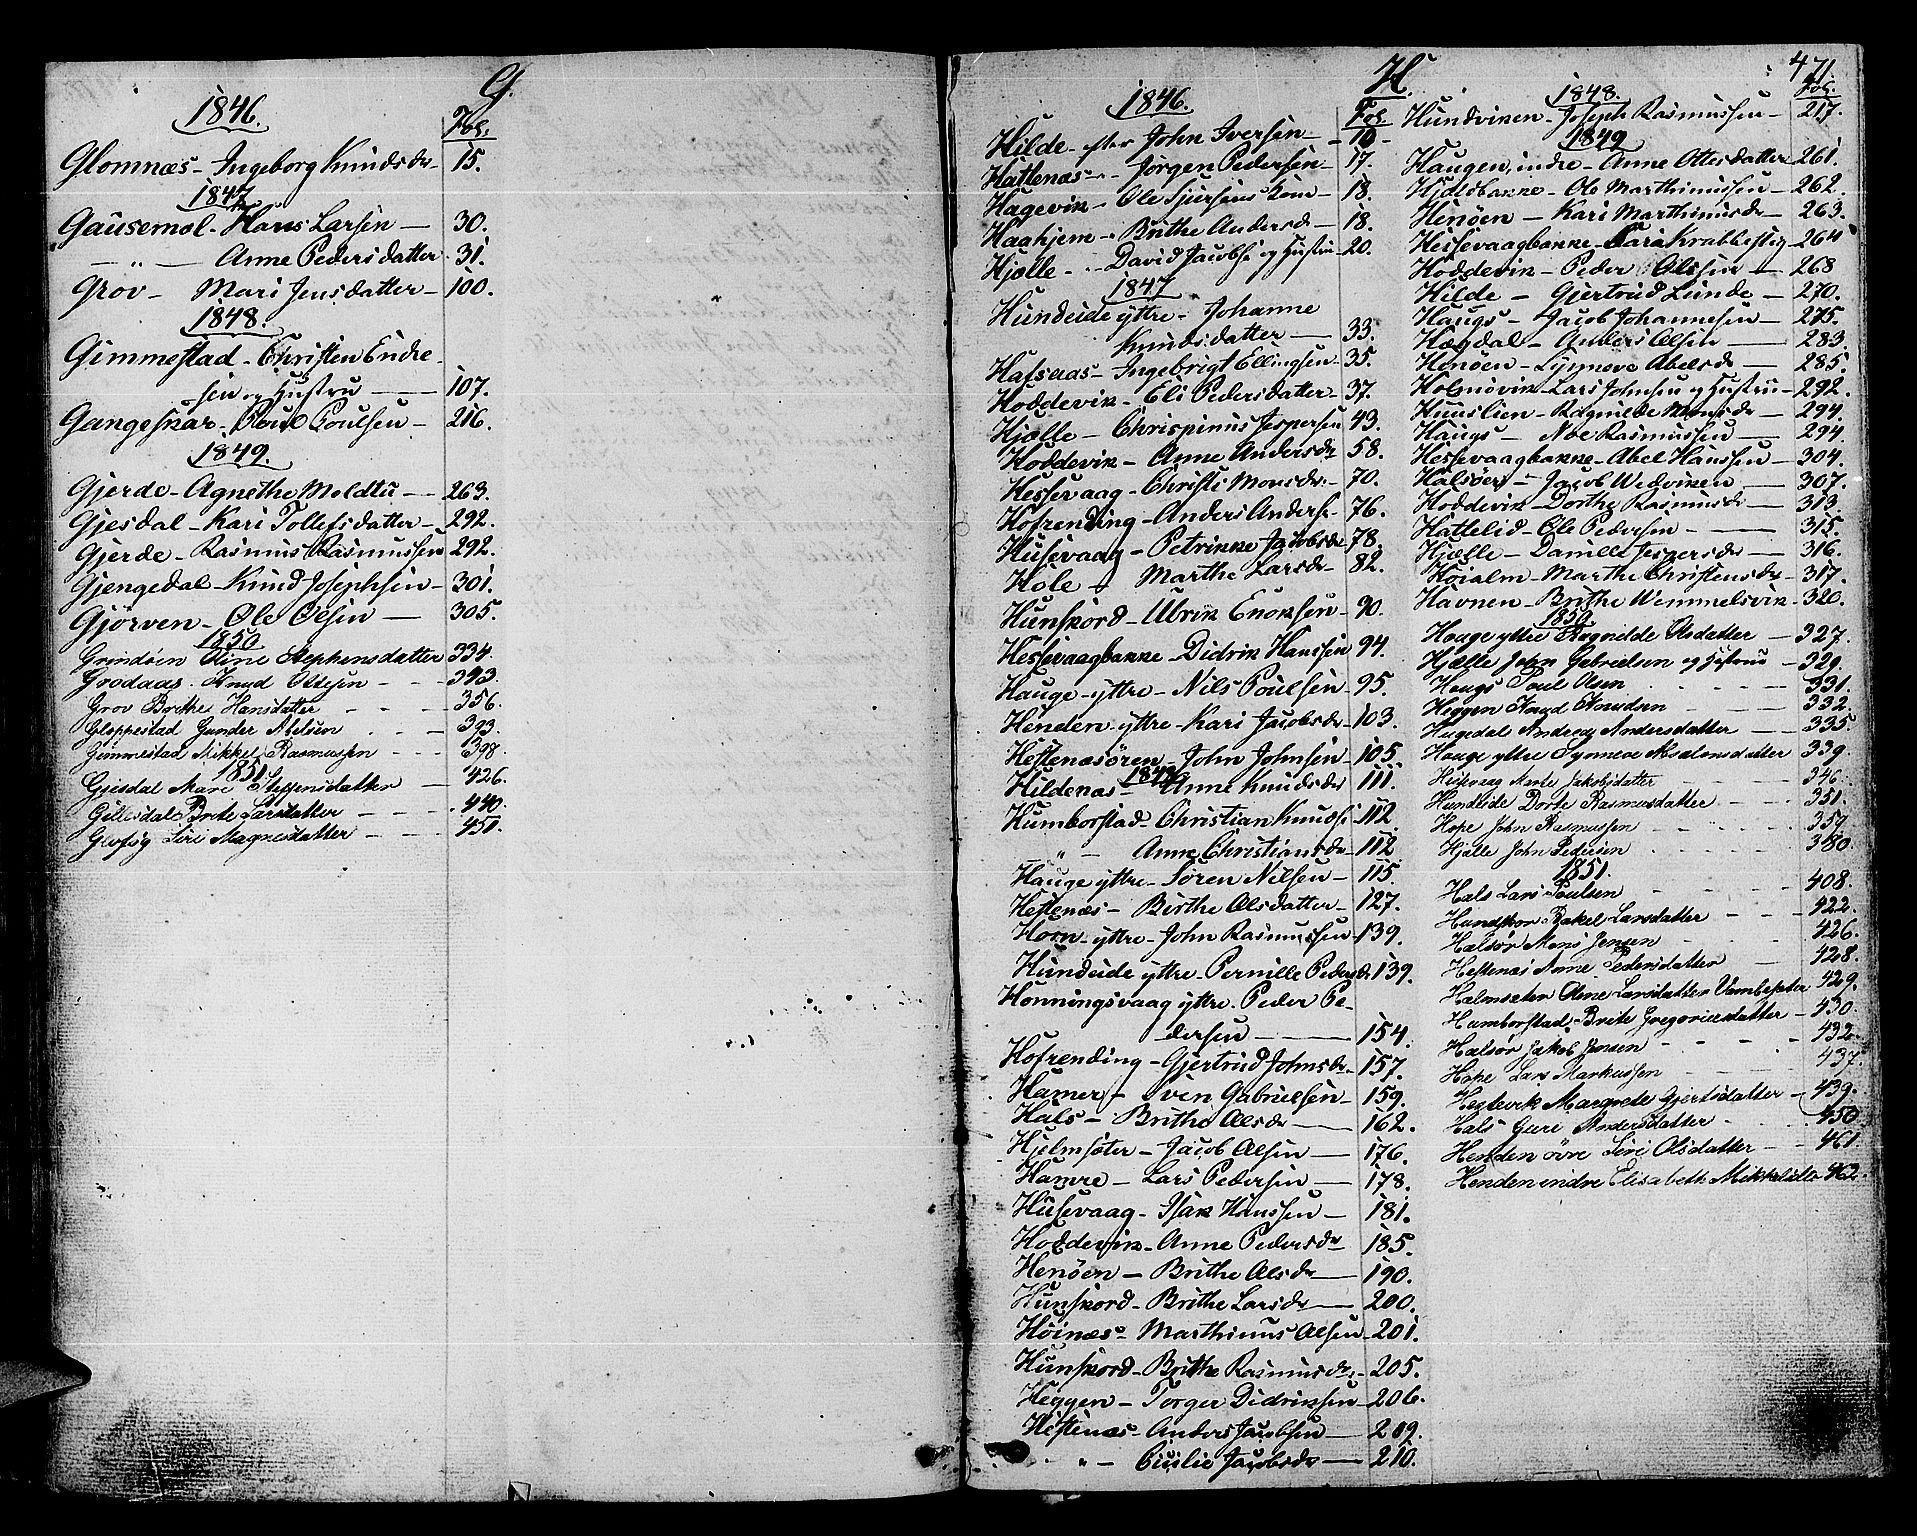 G.
1846.
Fol.
Glomnæs - Ingeborg Knudsdr 15.
1847
Gausemel - Hans Larsen — 30.
— „ — Anne Pedersdatter 31.
Grov - Mari Jensdatter - 100.
1848.
Gimmestad - Christen Endre-
sen og Hustru — 107.
Gangeskar - Poul Poulsen - 216.
1849.
Gjerde - Agnethe Moldtu - - 263.
Gjesdal - Kari Tollefsdatter - 292.
Gjerde - Rasmus Rasmussen 292.
Gjengedal - Knud Josephsen - 301.
Gjörven - Ole Olsen — 305.
1850
Grindöen Oline Stephensdatter 334.
Grodaas. Knud Ottesen - - - 343.
Grov Brithe Hansdatter - - - 356.
Gloppestad Gunder Abelsen - - 393.
Gimmestad Mikkel Rasmussen - - - 398.
1851
Gjesdal Mari Steffensdatter - 426.
Gillesdal Brite Larsdatter - - - 440.
Siri Magnesdatter - - - 451.
H. 471.
1846.
Fol.
Hilde - efter John Iversen - 10 -
Hattenæs - „ - Jörgen Pedersen - 17.
Hagevik - Ole Sjursens Kone - 18.
Haahjem - „ Brithe Andersdr - 18.
Hjelle - „ David Jacobsen og Hustru 20.
1847
Hundeide yttre - Johanne
Knudsdatter — 33.
Hafsaas - Ingebrigt Ellingsen - 35.
Hoddevik - Eli Pedersdatter - 37.
Hjelle - Chrispinus Jespersen 43.
Hoddevik - Anne Andersdr 58.
Hessevaag - Christi Monsdr - 70.
Hofrending - Anders Anderse - 76.
Husevaag - Petrikke Jacobsdr 78.
Hole - Marthe Larsdr - 82.
Hunskord - Ulrik Enoksen - 90.
Hessevaagbakke - Didrik Hanssen 94.
Hauge - yttre - Nils Poulsen - 95.
Henden yttre - Kari Jacobsdr - 103.
Hestenæsören - John Johnsen - 105.
1848
Hildenæs - Anne Knudsdr - 111.
Humborstad - Christian Knudse 112
— „ — Anne Christiansdr - 112
Hauge yttre - Sören Nilsen - 115.
Hestenæs - Berthe Olsdatter - 127.
Horn - yttre - John Rasmussen - 139.
Hundeide yttre - Pernille Pedersdr 139.
Honningsvaag yttre. Peder Pe-
dersen — 154.
Hofrending - Gjertrud Johnsdr - 157.
Hamer - Sven Gabrielsen - 159.
Hals - Brithe Olsdr — 162.
Hjelmsæter - Jacob Olsen — 176.
Hamre - Lars Pedersen — 178.
Husevaag - Isak Hanssen - 181.
Hoddevik - Anne Pedersdr 185.
Henöen - Brithe Olsdr — 190.
Hunskord - Brithe Larsdr — 200.
Höinæs - Marthinus Olsen - 201.
Hunskord - Brithe Rasmusdr - 205.
Heggen - Torger Didriksen - 206.
Hestenæs - Anders Jacobsen - 209.
- „ - Cicilie Jacobsdr - 210.
1848.
Fol.
Hundviken - Joseph Rasmussen - 217.
1849
Haugen, indre - Anne Ottersdatter 261.
Hjelsbakke - Ole Marthinussen - 262.
Henöen - Kari Marthinusdr - 263.
Hessevaagbakke - Krabbestig - 264
Hoddevik - Peder Olssen - 268
Hilde - Gjertrud Lunde - 270.
Haugs - Jacob Johannesen - 275.
Hægdal - Anders Olsen — 283.
Henöen - Synneve Abelsdr - 285.
Holmövik - Lars Johnsen og Hustru - 292.
Huuslien - Ragnilde Monsdr - 294.
Haugs - Noe Rasmussen — 294.
Hessevaagbakke - Abel Hanssen - 304.
Halsöer - Jacob Wedviken — 307.
Hoddevik - Dorthe Rasmusdr - 313.
Hattelid - Ole Pedersen — 315.
Hjelle - Danille Jespersdr - 316.
Höialm - Marthe Christensdr - 317.
Havnen - Brithe Wemmelsvik - 320.
1850
Hauge yttre Ragnilde Olsdatter - 327.
Hjelle John Gabrielsen og Hustru - 329.
Haugs Poul Olsen . . . - 331.
Heggen Knud Knudsen - - - 332.
Hagedal Andrea Andersdatter — 335.
Hauge yttre Synneva Absalonsdatter 339.
Hessevaag Marte Jakobsdatter 346.
Hundeide Dorte Rasmusdatter - - - 351.
Hope John Rasmussen - - - - 359
Hjelle John Pedersen . . . . . 380.
1851.
Hals Lars Poulsen - - - 408.
Hundskor Rakel Larsdatter - - - 422.
Halsör Mons Jensen - - - - 426.
Hestenæs Anne Pedersdatter - - - 428.
Halmseter Oline Larsdatter 429.
Hamborstad Brite Gregoriusdatter - 430.
Halsör Jakob Jensen - - - - 432.
Hope Lars Markussen - - - 437.
Hestevik Margrete Gjertsdatter - 439.
Hals Guri Andersdatter - - - 450
Henden övre Siri Olsdatter - - 461.
Henden indre Elisabeth 462.